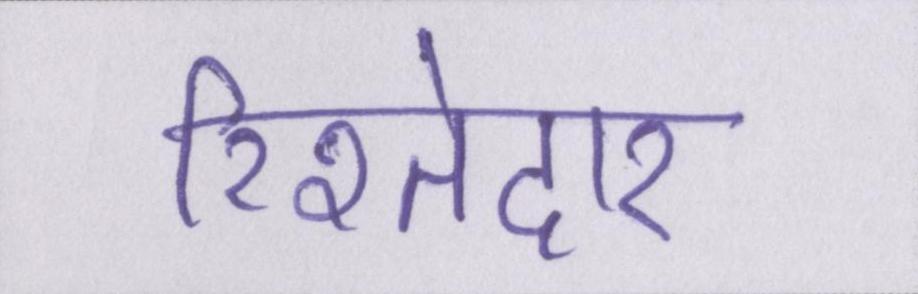 रिश्तेदार